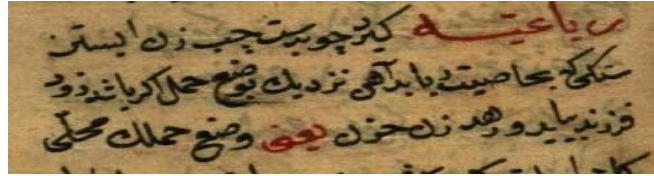 رباعیه کیرد چو بدست چپ زن ابستن
سنکی که بخاصیت باید آهی نزدیک بوضع حمل اکر باشد زود
فرزند بیاید و رهد زن حزن یعنی وضع حملك محلی